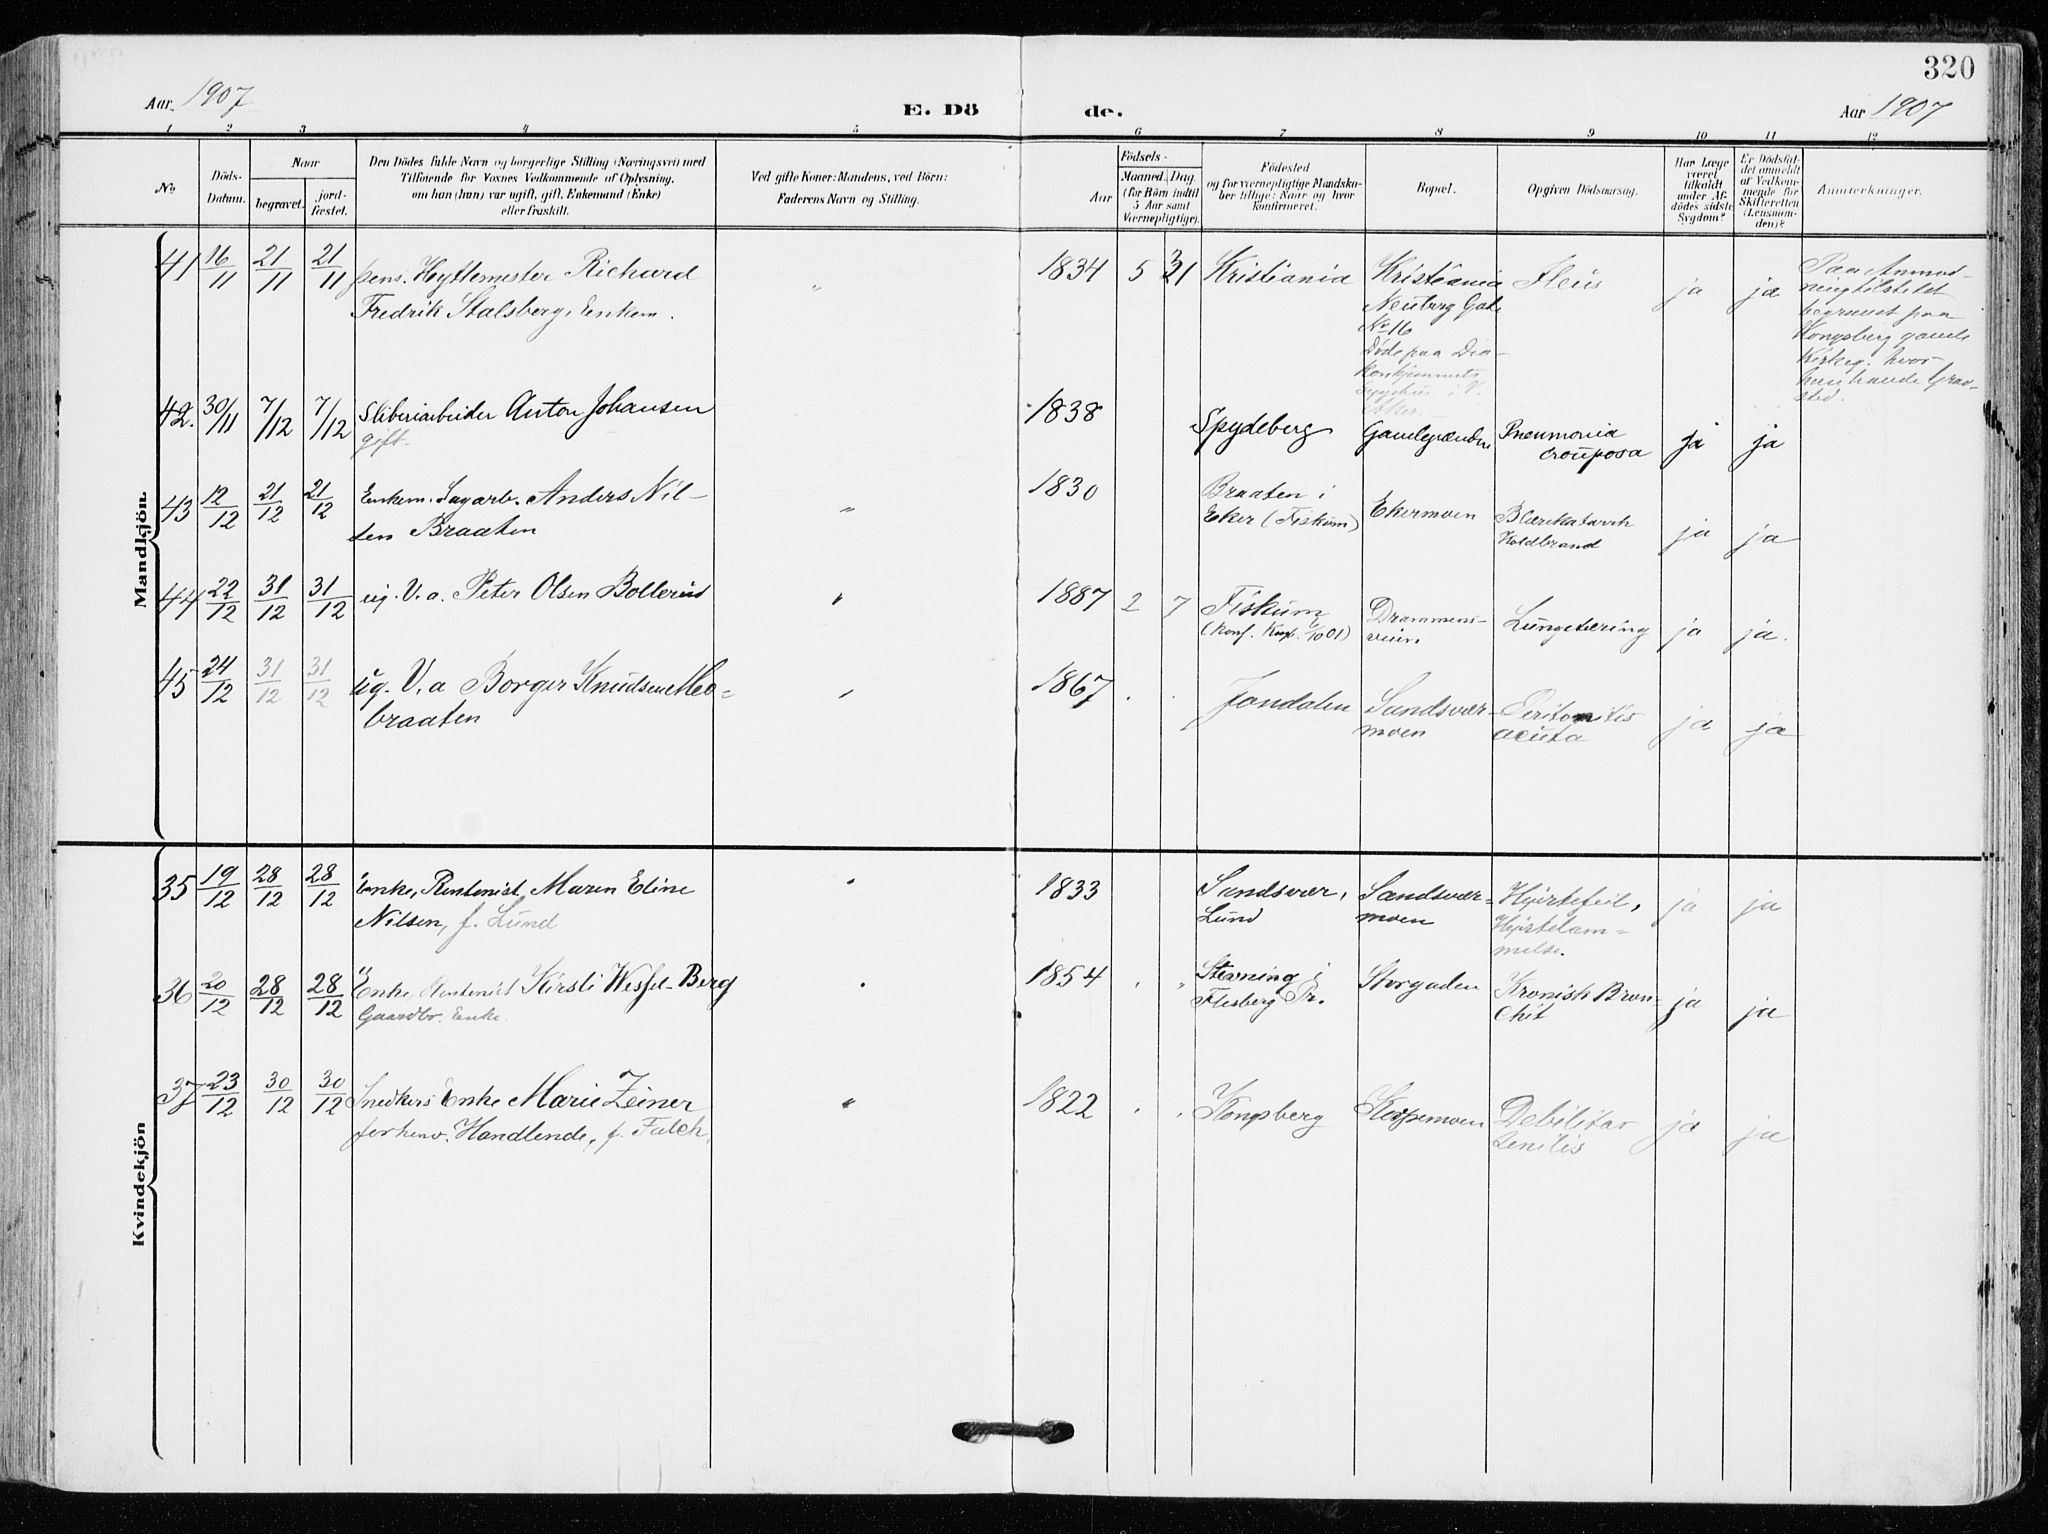 320
Aar 1907
E. Dö de.
Aar 1907
1 2 3 4 5 6 7 8 9 10 11 12
No.
Döds-Datum.
Naar begravet. jord-fæstet.
Den Dödes fulde Navn og borgerlige Stilling (Næringsvei) med
Tilföiende for Voxnes Vedkommende af Oplysning,
om han (hun) var ugift, gift, Enkemand (Enke)
eller fraskilt.
Ved gifte Koner: Mandens, ved Börn:
Faderens Navn og Stilling.
Födsels-
Aar
Maaned. Dag
(for Börn indtil
5 Aar samt
Værnepligtige).
Födested
og for værnepligtige Mandska-
ber tillige: Naar og hvor
konfirmeret.
Bopæl.
Opgiven Dödsaarsag.
Har Læge
været
tilkaldt
under Af-
dödes sidste
Sygdom?
Er Dödsfal-
det anmeldt
af Vedkom-
mende for
Skifteretten
(Lensman-
den)?
Anmærkninger.
Mandkjön.
41 16/11 21/11 21/11 pens. Hyttemester Richard
Fredrik Stalsberg, Enkem.
" 1834 5 31 Kristiania
Kristiania
Neuberg Gade
No 16
Døde paa Dia-
konhjemmets
Sygehus i V.
Aker.
Ileus ja ja
Paa Anmod-
ning tilstedet
begravet paa
Kongsberg gamle
Kirkeg. hvor
han havde Grav-
sted.
42. 30/11 7/12 7/12 Sliberiarbeider Anton Johansen
gift.
1838 Spydeberg Pneumonia
crouposa ja ja
43 12/12 21/12 21/12 Enkem. Sagarb. Anders Nil-
sen Braaten
" 1830 Braaten i
Eker (Fiskum) Ekermoen Blærekatarrh
Koldbrand ja ja
44 22/12 31/12 31/12 ug. V. a. Peter Olsen Bollerud
" 1887 2 7 Fiskum
(Konf. Kngb. 01) Drammens-
veien Lungetæring ja ja.
45 24/12 31/12 31/12 ug. V. a Borger Knudsen Mo-
braaten
" 1867 . . Jondalen Sandsvær-
moen Peritonitis
acuta ja ja
Kvindekjön
35 19/12 28/12 28/12 Enke, Rentenist, Maren Eline
Nilsen, f. Lund
" 1833 Sandsvær,
Lund Sandsvær-
moen Hjertefeil,
Hjertelam-
melse. ja ja
36 20/12 28/12 28/12 Enke, Rentenist Kirsti Wessel-Berg
Gaardbr. Enke.
" 1854 . " Stevning i
Flesberg Pr. Storgaden Kronisk Bron-
chit ja ja
37 23/12 30/12 30/12 Snedkers Enke Marie Zeiner
forhenv. Handlende, f. Falch.
" 1822 . . Kongsberg Skrpemoen Debilitas
senilis ja ja